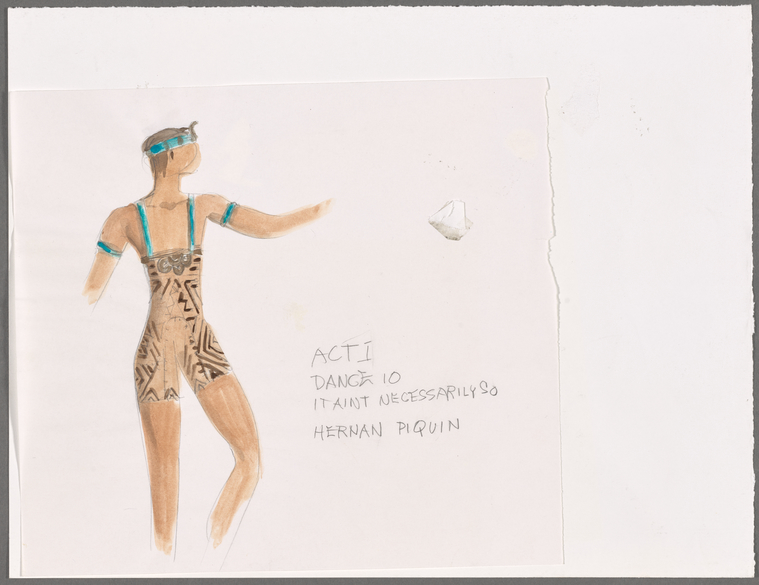 ACT I
DANCE 10
IT AINT NECESSARILY SO
HERNAN PIQUIN